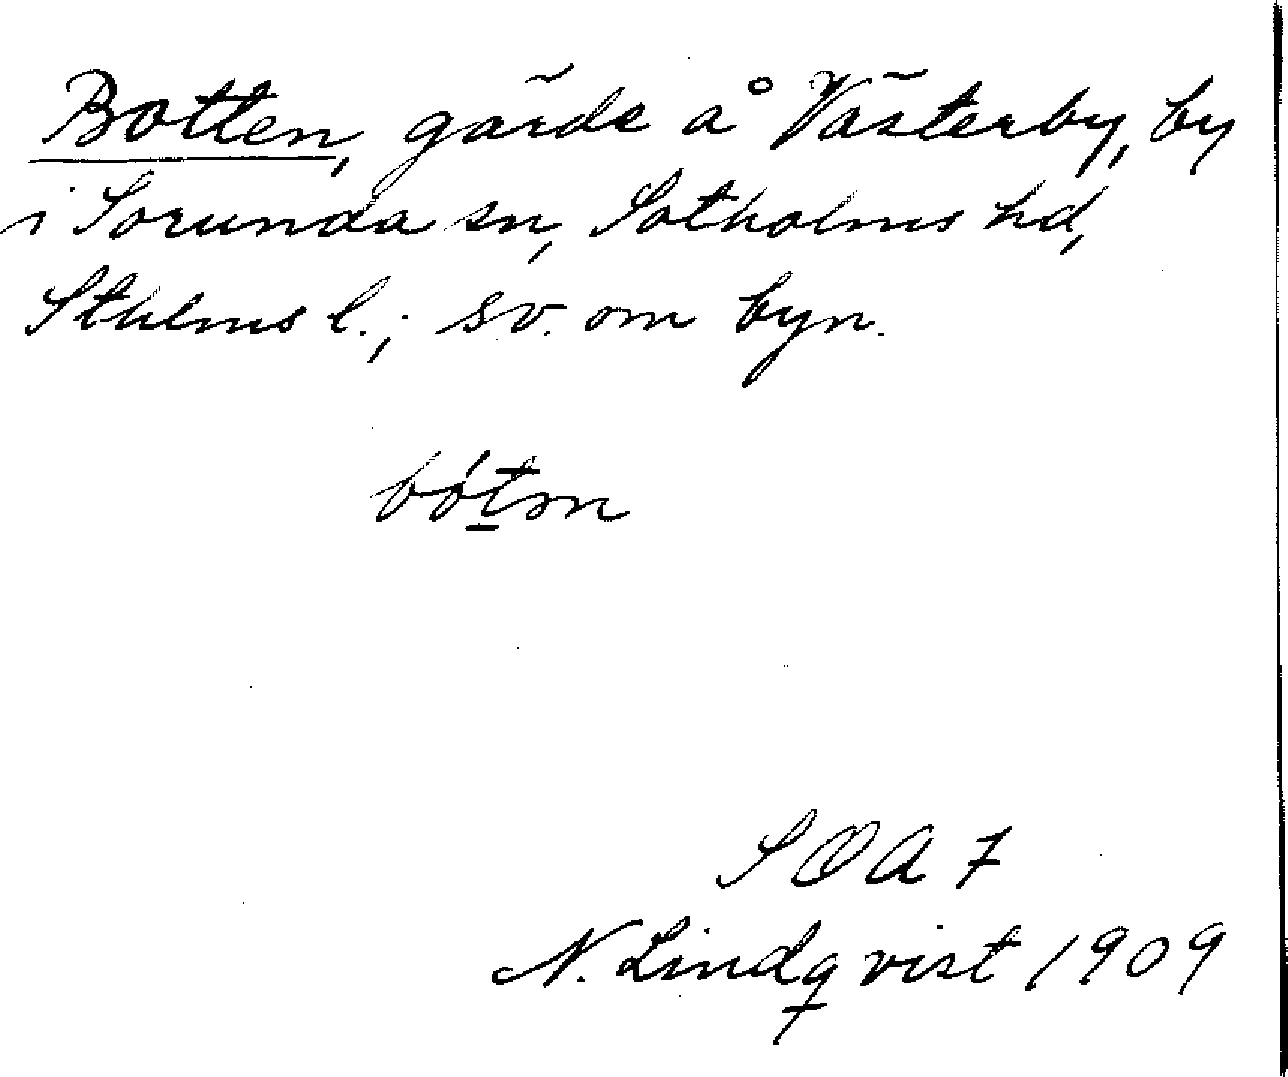 Botten, gärde å Västerby, by
i Sorunda sn, Sotholms hd,
Sthlms l.; sv. om byn.
bót̲m
SOA 7
N. Lindqvist 1909